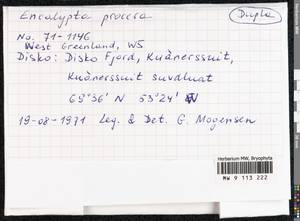 Encalypta procera
Dupla
No. 71-1146
West Greenland, W5
Disko: Disko Fjord, Kuánerssuit,
Kuánerssuit suvdluat
69°36' N 53°24' W
19-08-1971 Leg. & Det. G. Mogensen
Herbarium MW, Bryophyta
MW 9 113 222